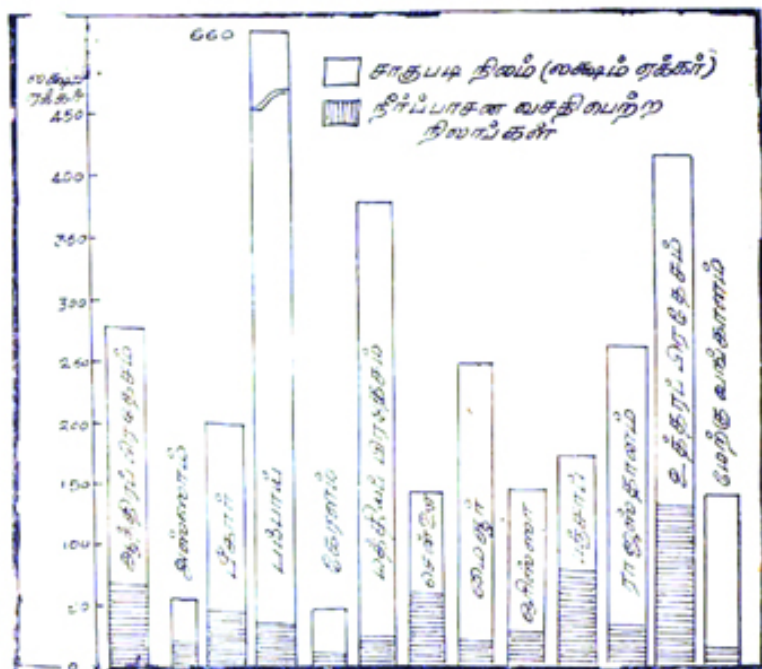 660
சாகுபடி நிலம் (லக்ஷம் ஏக்கர்)
நீர்ப்பாசன வசதிபெற்ற
நிலங்கள்
லக்ஷம்
ஏக்கர்
450
400
350
300
250
200
150
100
50
0
ஆந்திரப் பிரதேசம்
அஸ்ஸாம்
பீகார்
பம்பாய்
கேரளம்
மத்தியப் பிரதேசம்
சென்னை
மைசூர்
ஒரிஸ்ஸா
பஞ்சாப்
ராஜஸ்தானம்
உத்தரப் பிரதேசம்
மேற்கு வங்காளம்